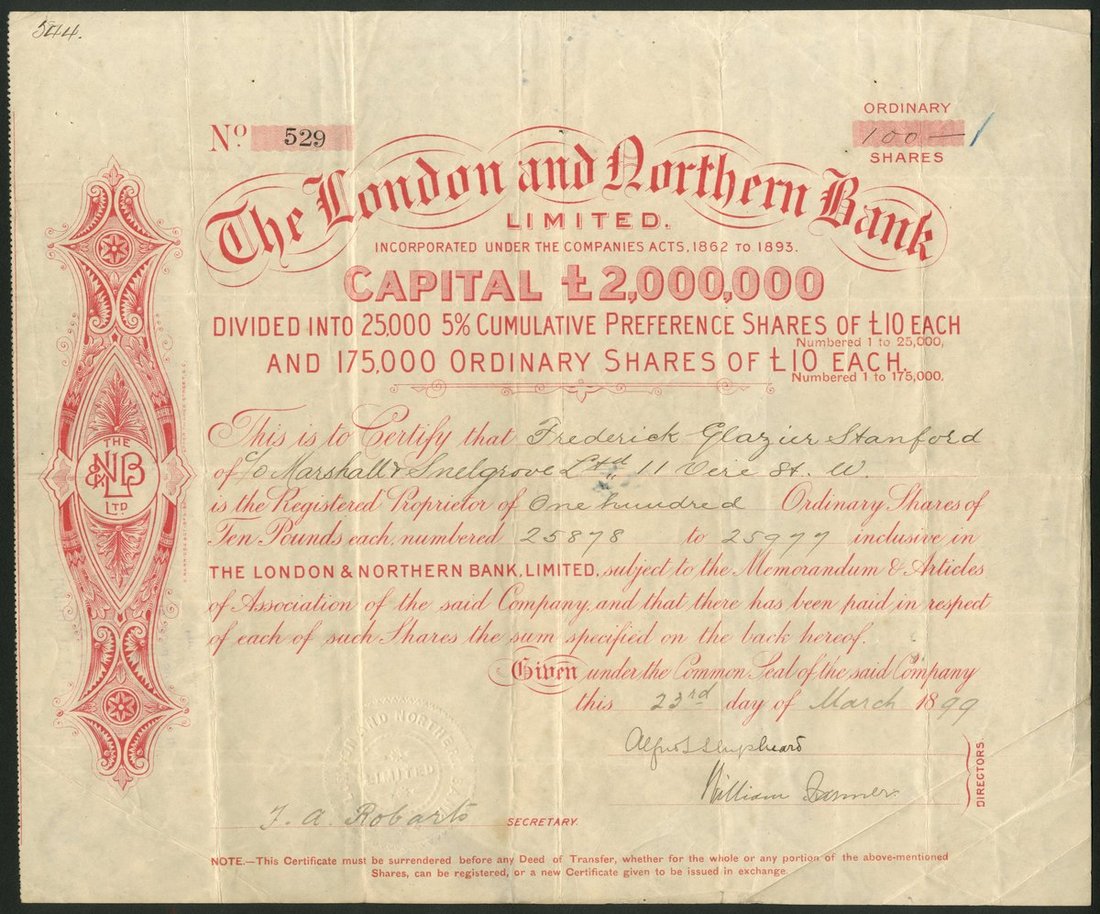 544.
No. 529
ORDINARY
100 —
SHARES
The London and Northern Bank
LIMITED.
INCORPORATED UNDER THE COMPANIES ACTS, 1862 TO 1893.
CAPITAL £2,000,000
DIVIDED INTO 25,000 5% CUMULATIVE PREFERENCE SHARES OF £10 EACH
Numbered 1 to 25,000,
AND 175,000 ORDINARY SHARES OF £10 EACH.
Numbered 1 to 175,000.
This is to Certify that Frederick Glazier Stanford
of c/o Marshall & Snelgrove Ltd 11 Vere St. W.
is the Registered Proprietor of One hundred Ordinary Shares of
Ten Pounds each, numbered 25878 to 25977 inclusive in
THE LONDON & NORTHERN BANK, LIMITED, subject to the Memorandum & Articles
of Association of the said Company, and that there has been paid in respect
of each of such Shares the sum specified on the back hereof.
Given under the Common Seal of the said Company
this 23rd day of March 1899
William Farmer
DIRECTORS.
F. A. Robarts SECRETARY.
THE
L&NB
LTD.
NORTHERN
LIMITED
NOTE.—This Certificate must be surrendered before any Deed of Transfer, whether for the whole or any portion of the above-mentioned
Shares, can be registered, or a new Certificate given to be issued in exchange.